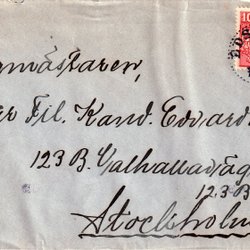 rmästaren,
er Fil. Kand. Edvard
123 B. Valhallaväg
123 B
Stockholm
10